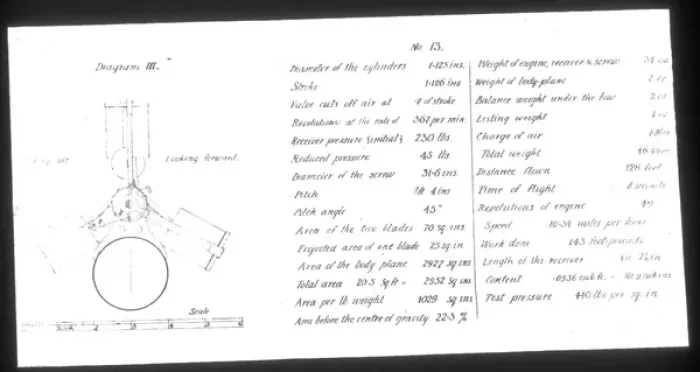 No. 13.
Diagram III.
Looking forward.
Scale
Diameter of the cylinders 1·125 ins.
Stroke 1·126 ins
Valve cuts off air at ·8 of stroke
Revolutions at the rate of 367 per min.
Receiver pressure (initial) 230 lbs.
Reduced pressure 45 lbs
Diameter of the screw 31·6 ins.
Pitch 4 ins
Pitch angle 45°
Area of the two blades 70 sq. ins.
Projected area of one blade 25 sq. in.
Area of the body plane 2927 sq ins
Total area 20·5 sq ft = 2952 sq ins
Area per lb weight 1029 sq ins
Area before the centre of gravity 22·3 %
Weight of engine, receiver & screw oz.
Weight of body-plane 2 oz.
Balance weight under the bow 2 oz.
Listing weight oz
Charge of air
Total weight
Distance flown 128 feet
Time of flight seconds
Revolutions of engine
Speed 10·34 miles per hour
Work done foot-pounds
Length of the receiver in.
Content ·0936 cub ft. =
Test pressure 440 lbs per sq. in.